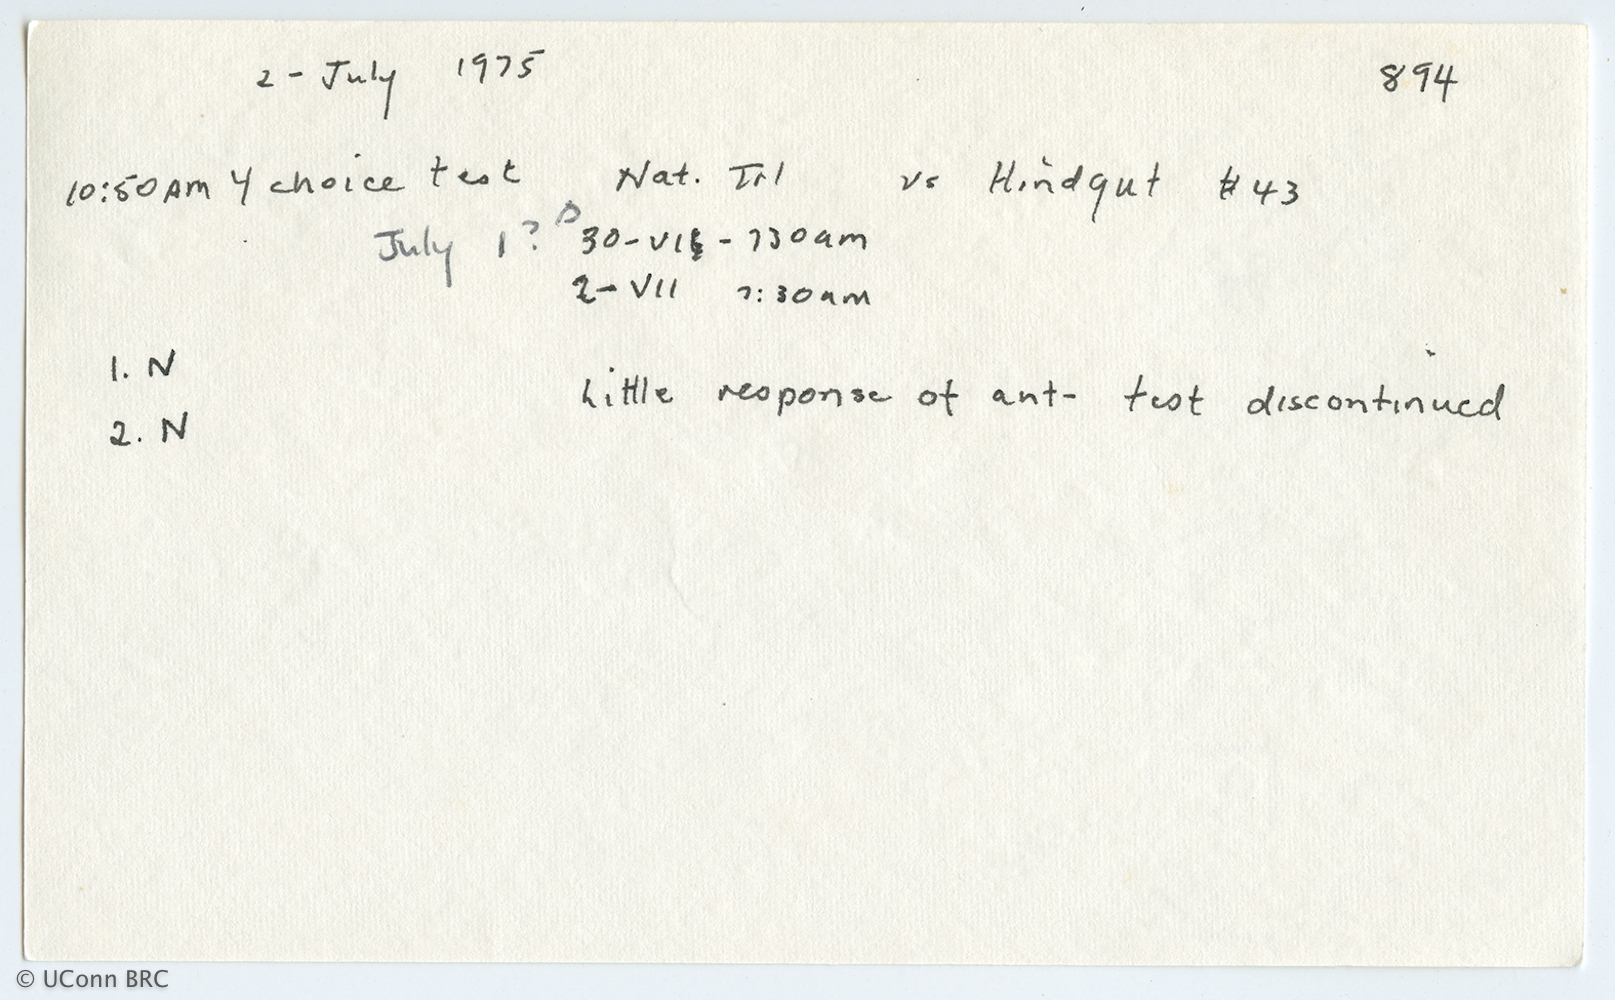 2 - July 1975 894
10:50 AM Y choice test Nat. Trl vs Hindgut #43
July 1? 30-VII - 730am
2-VII 7:30am
1. N
Little response of ant - test discontinued
2. N
© UConn BRC